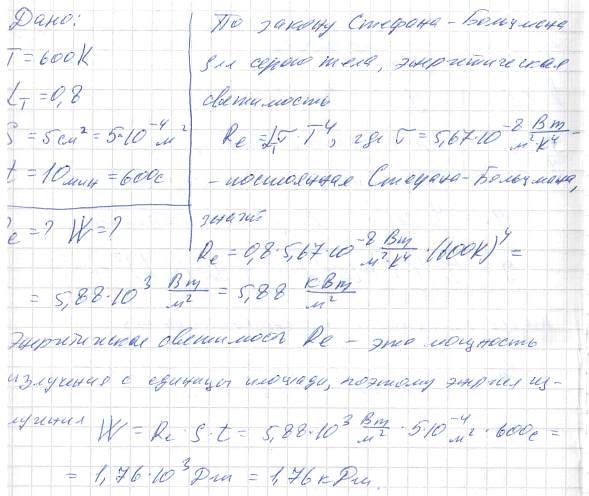 Дано:
T = 600К
α_T = 0,8
S = 5 см² = 5·10⁻⁴ м²
t = 10 мин = 600с
Rе = ? W = ?
По закону Стефана-Больцмана
для серого тела, энергетическая
светимость
Re = α_T σ T⁴, где σ = 5,67·10⁻⁸ Вт/м²·К⁴ -
- постоянная Стефана-Больцмана,
значит
Re = 0,8·5,67·10⁻⁸ Вт/м²·К⁴ · (600К)⁴ =
= 5,88·10³ Вт/м² = 5,88 кВт/м²
Энергетическая светимость Re - это мощность
излучения с единицы площади, поэтому энергия из-
лучения W = Re·S·t = 5,88·10³ Вт/м² · 5·10⁻⁴ м² · 600с =
= 1,76·10³ Дж = 1,76 кДж.